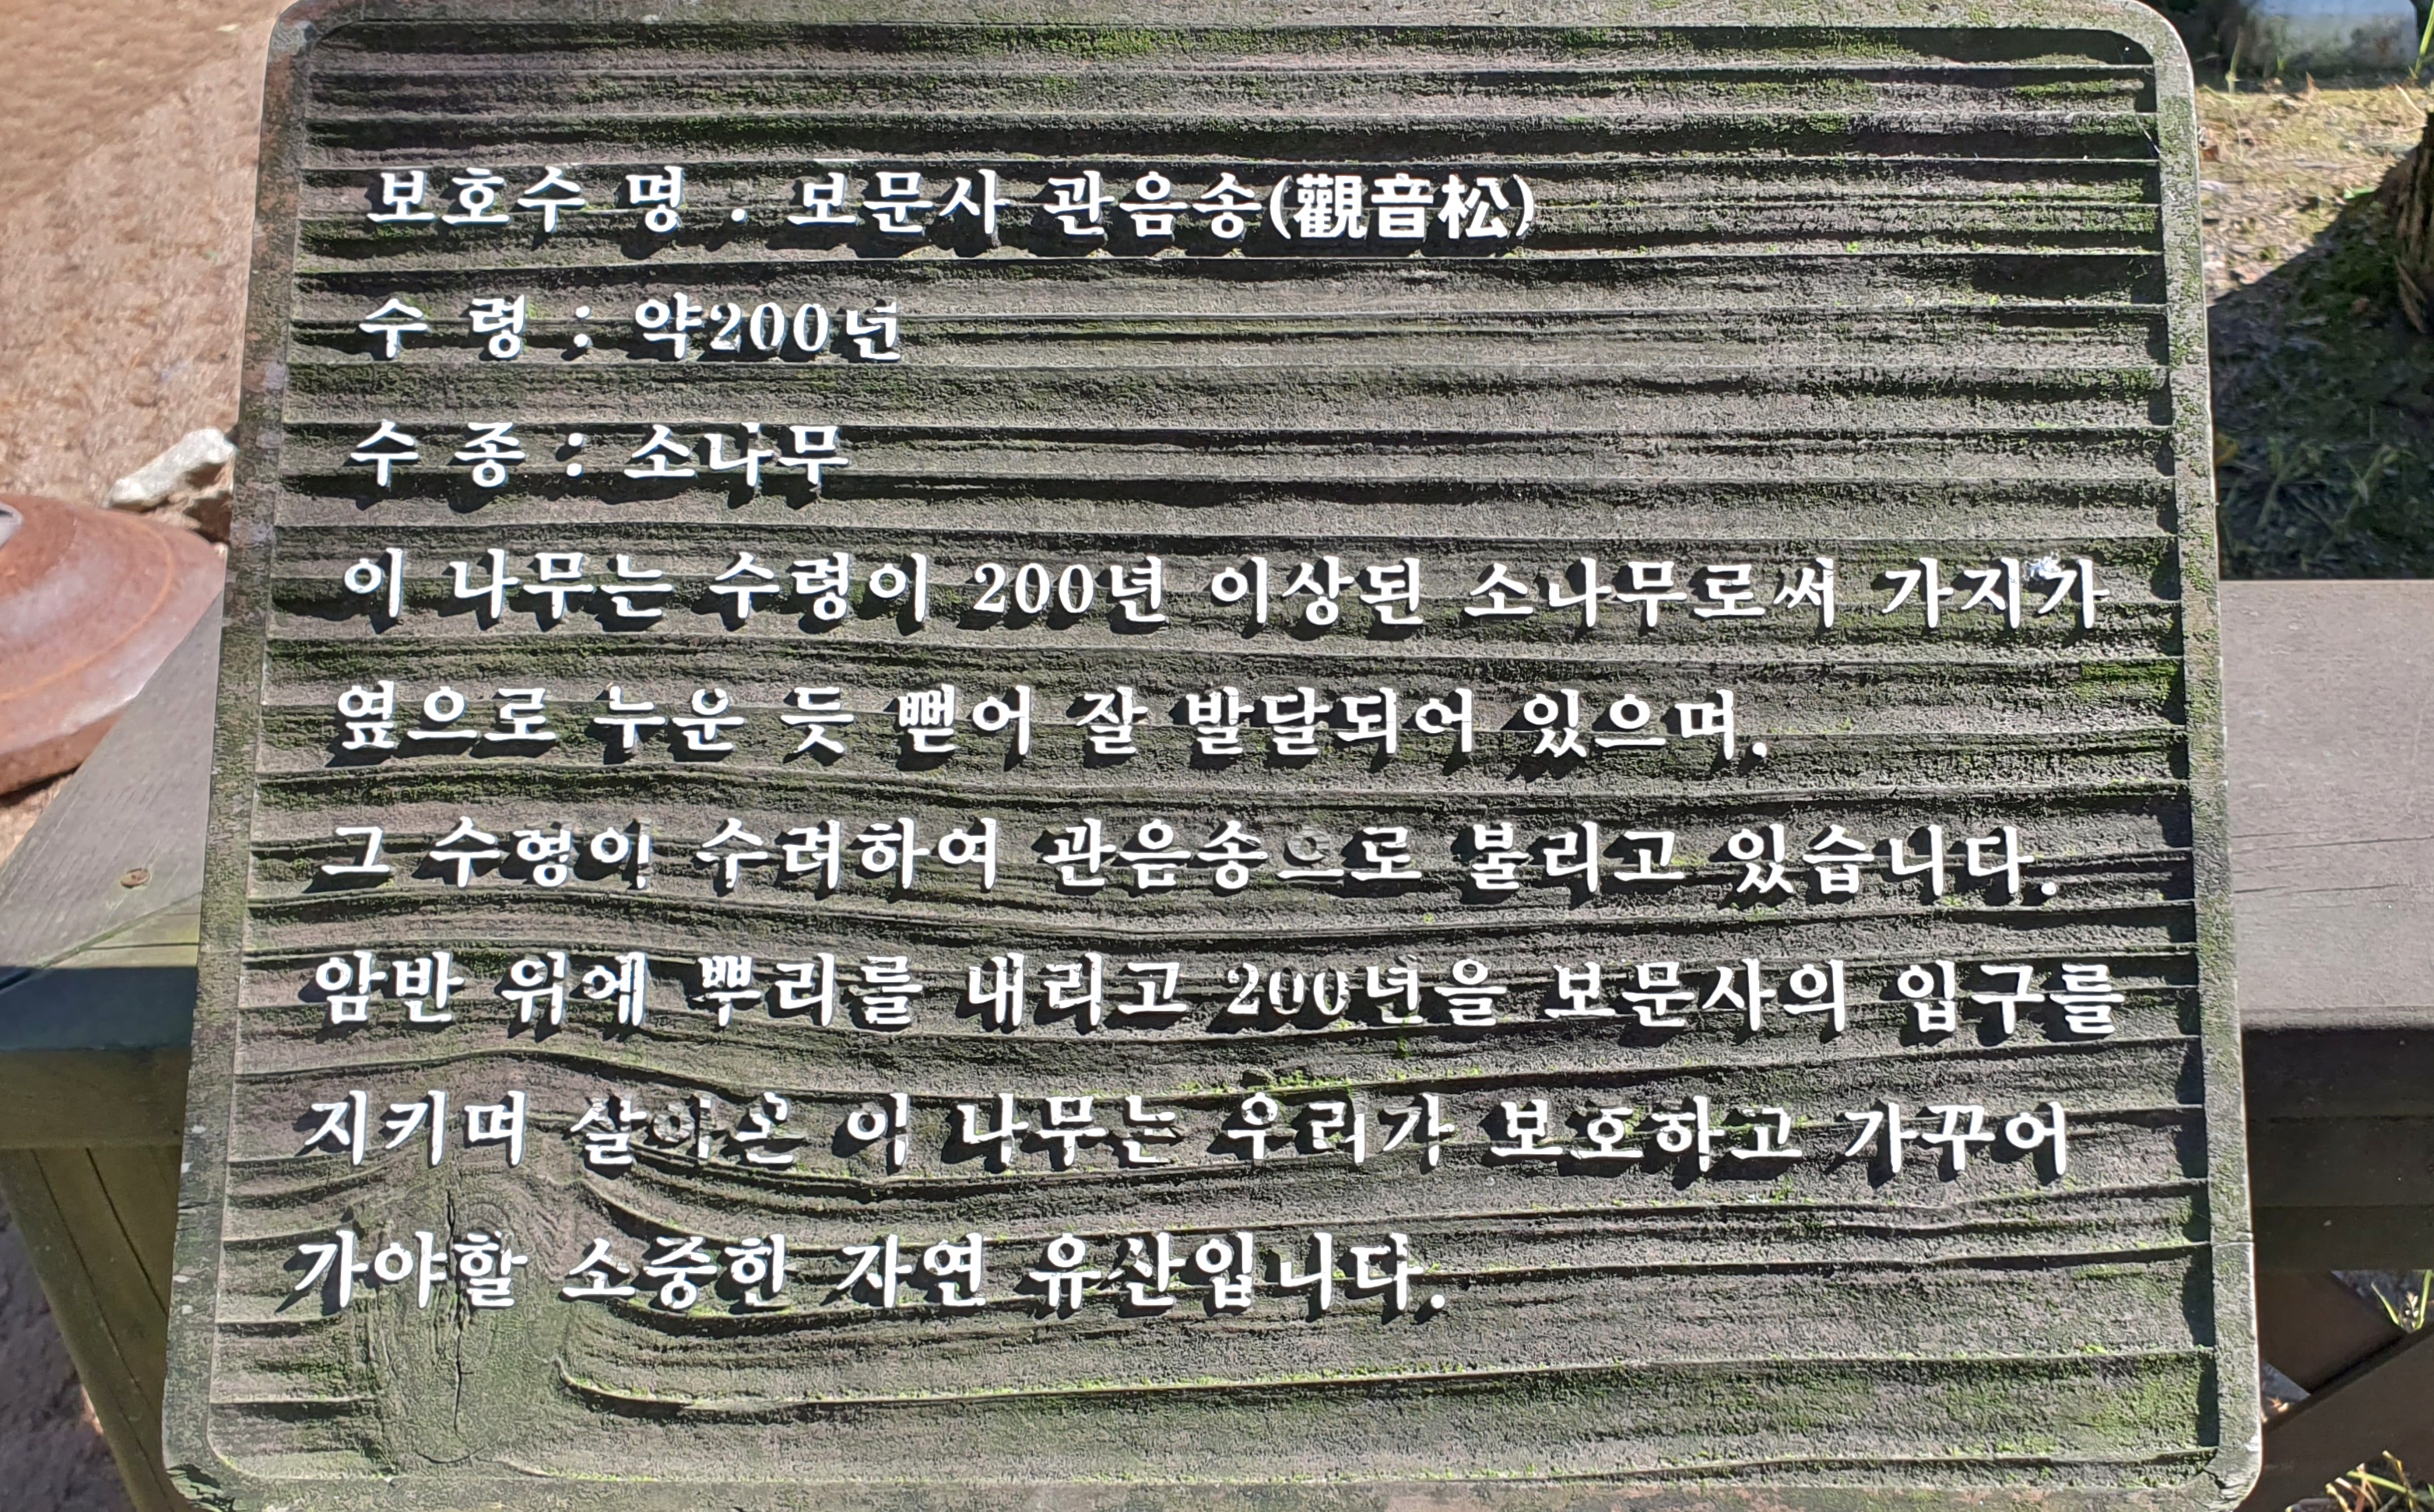 보호수 명 . 보문사 관음송(觀音松)
수 령 : 약200년
수 종 : 소나무
이 나무는 수령이 200년 이상된 소나무로써 가지가
옆으로 누운 듯 뻗어 잘 발달되어 있으며.
그 수형이 수려하여 관음송으로 불리고 있습니다.
암반 위에 뿌리를 내리고 200년을 보문사의 입구를
지키며 살아온 이 나무는 우리가 보호하고 가꾸어
가야할 소중한 자연 유산입니다.